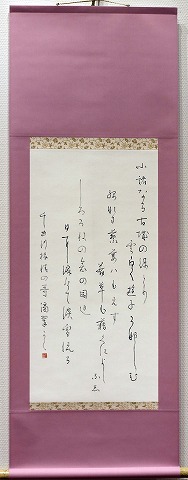 小諸なる古城の保とり
雲白く遊子かなしむ
緑なす蘩蔞ハもえず
若草も藉くによし
なし
しろがねの衾の岡辺
日に溶けて淡雪流る
千曲川旅情の詩